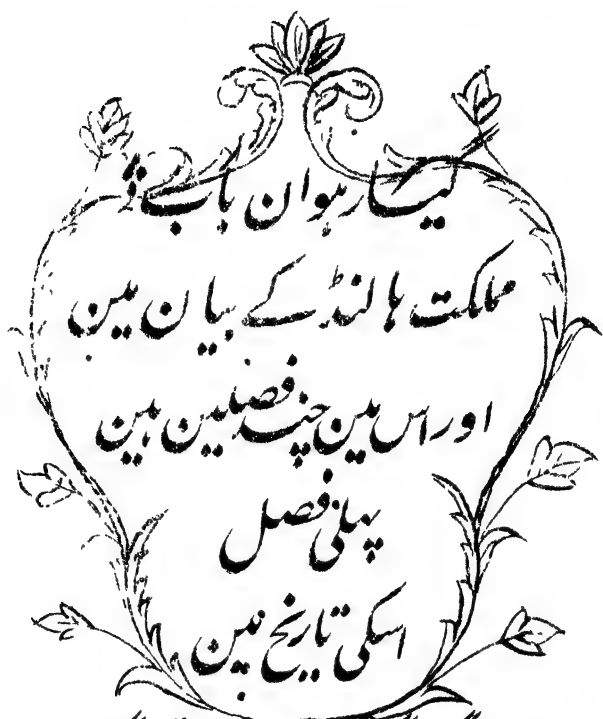 گیارہوان باب
مملکت ہالنڈ کے بیان مین
اور اس مین چند فصلین ہین
پہلی فصل
اسکی تاریخ مین